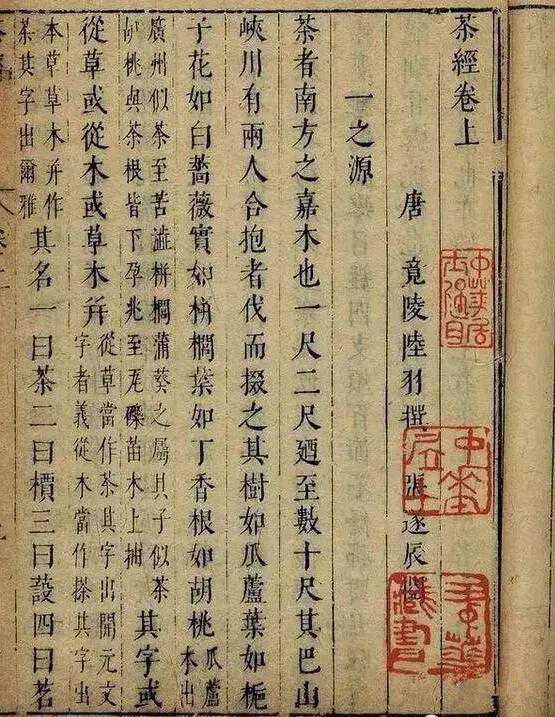 茶經卷上
唐 竟陵陸羽撰 張遂辰閱
一之源
茶者南方之嘉木也一尺二尺廼至數十尺其巴山
峽川有兩人合抱者伐而掇之其樹如瓜蘆葉如梔
子花如白薔薇實如栟櫚葉如丁香根如胡桃瓜蘆木出
廣州似茶至苦澁栟櫚蒲葵之屬其子似茶胡桃與茶根皆下孕兆至瓦礫苗木上抽其字或
從草或從木或草木并從草當作茶其字出開元文字者義從木當作搽其字出
本草草木并作荼其字出爾雅其名一曰茶二曰檟三曰蔎四曰茗
中華居士